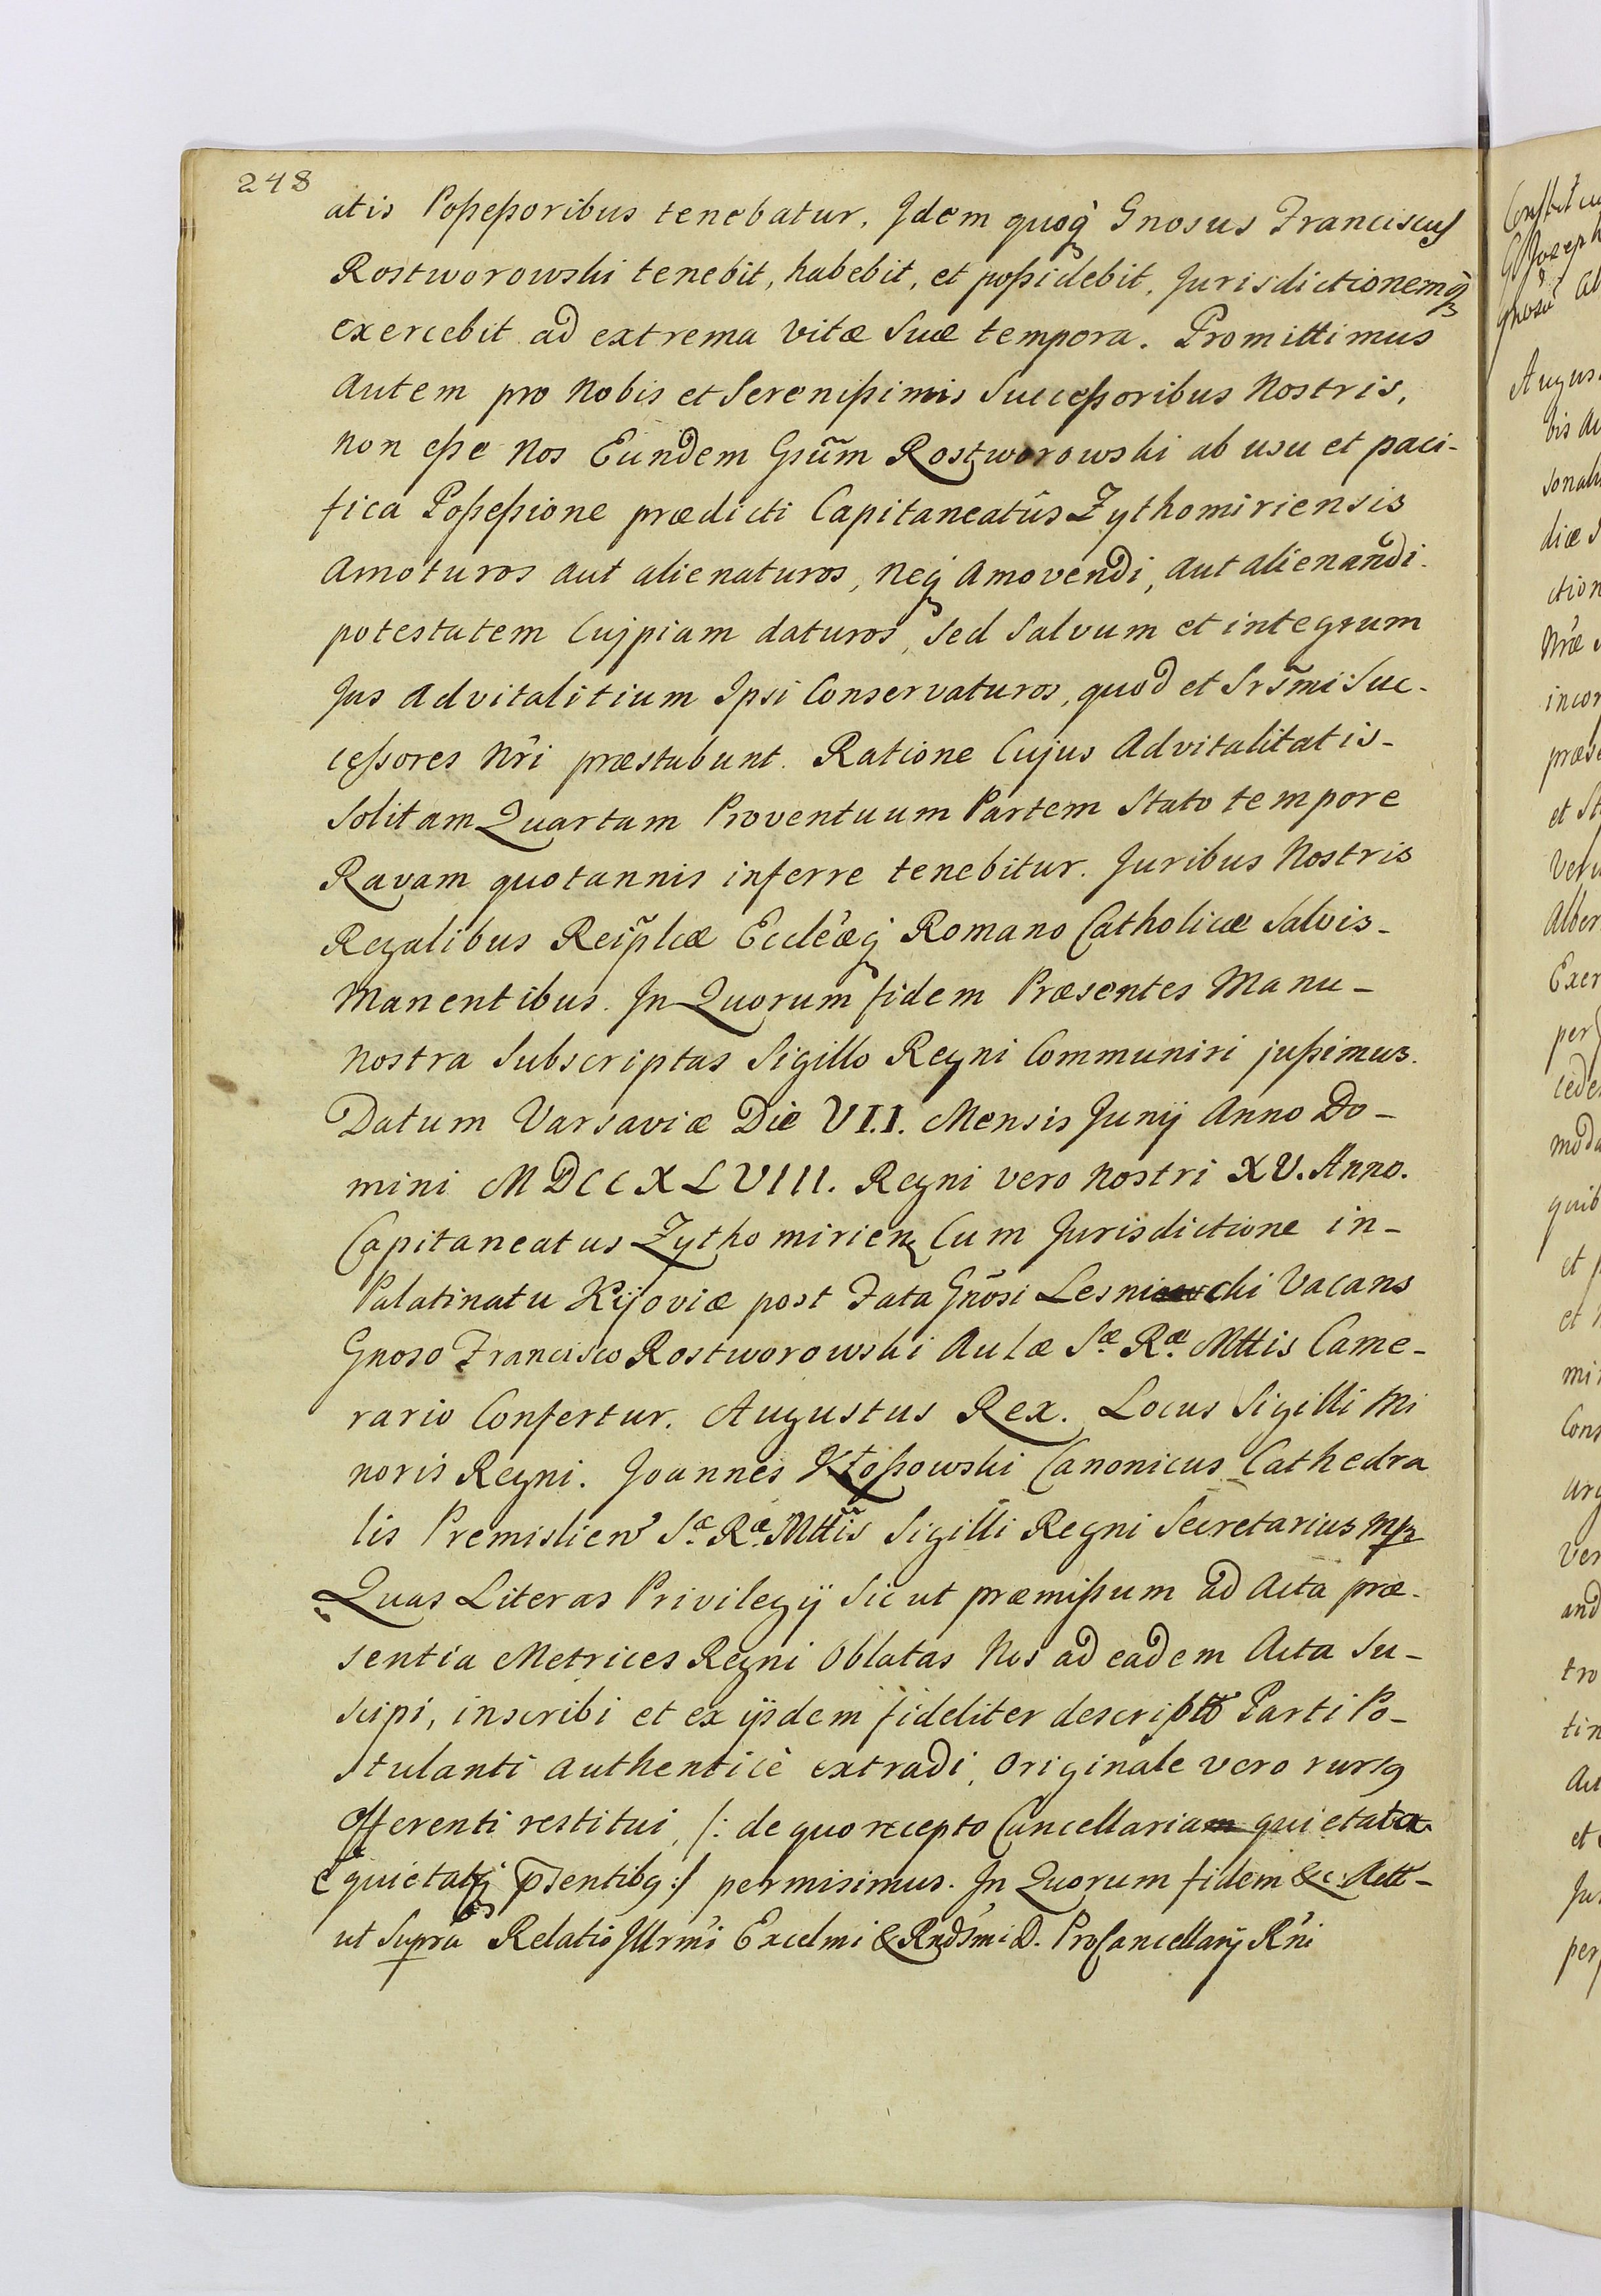 248
atis Poßeßoribus tenebatur. Jdem quoq̀ Gnosus Franciscus
Rostworowski tenebit, habebit, et poßidebit, Jurisdictionemq̀
exercebit ad extrema vitæ Suæ tempora. Promittimus
autem pro Nobis et Serenißimis Succeßoribus Nostris,
non eße Nos Eundem Gsũm Rostworowski ab usu et paci-
fica Poßeßione prædicti Capitaneatûs Zythomiriensis
amoturos aut alienaturos, neq̀ amovendi, aut alienandi
potestatem Cujpiam daturos, sed Salvum et integrum
Jus advitalitium Ipsi Conservaturos, quod et Srsm̃i Suc-
ceßores Nr̃i præstabunt. Ratione Cujus Advitalitatis-
Solitam Quartam Proventuum Partem Stato tempore
Ravam quotannis inferre tenebitur. Juribus Nostris
Regalibus Reip̃lcæ Eccleæq̀ Romano Catholicæ Salvis-
Manentibus. Jn Quorum fidem Præsentes Manu-
nostra Subscriptas Sigillo Regni Communiri jußimus.
Datum Varsaviæ Die VII. Mensis Junij Anno Do-
mini MDCCXLVIII. Regni vero Nostri XV. Anno.
Capitaneatus Zythomirien Cum Jurisdictione in-
Palatinatu Kijoviæ post Fata Gñosi Lesnicki Vacans
Gnoso Francisco Rostworowski Aulæ Sæ Ræ Mttis Came-
rario Confertur. Augustus Rex. Locus Sigilli Mi
noris Regni. Joannes Kłoßowski Canonicus Cathedra
lis Premislien Sæ Ræ Mttis Sigilli Regni Secretarius mp
Quas Literas Privilegij Sic ut præmißum ad Acta præ-
sentia Metrices Regni Oblatas Nos ad eadem Acta Su-
scipi, inscribi et ex ijsdem fideliter descripto Parti Po-
stulanti authenticè extradi, Originale vero rursq
Offerenti restitui, /: de quo recepto Cancellaria quietata
è quietatq̀ p̄sentibq :/ permisimus. Jn Quorum fidem &c. Actt-
ut Supra Relatio Jllrm̃i Excelmi & Rnds̃mi D. ProCancellarij Rñi